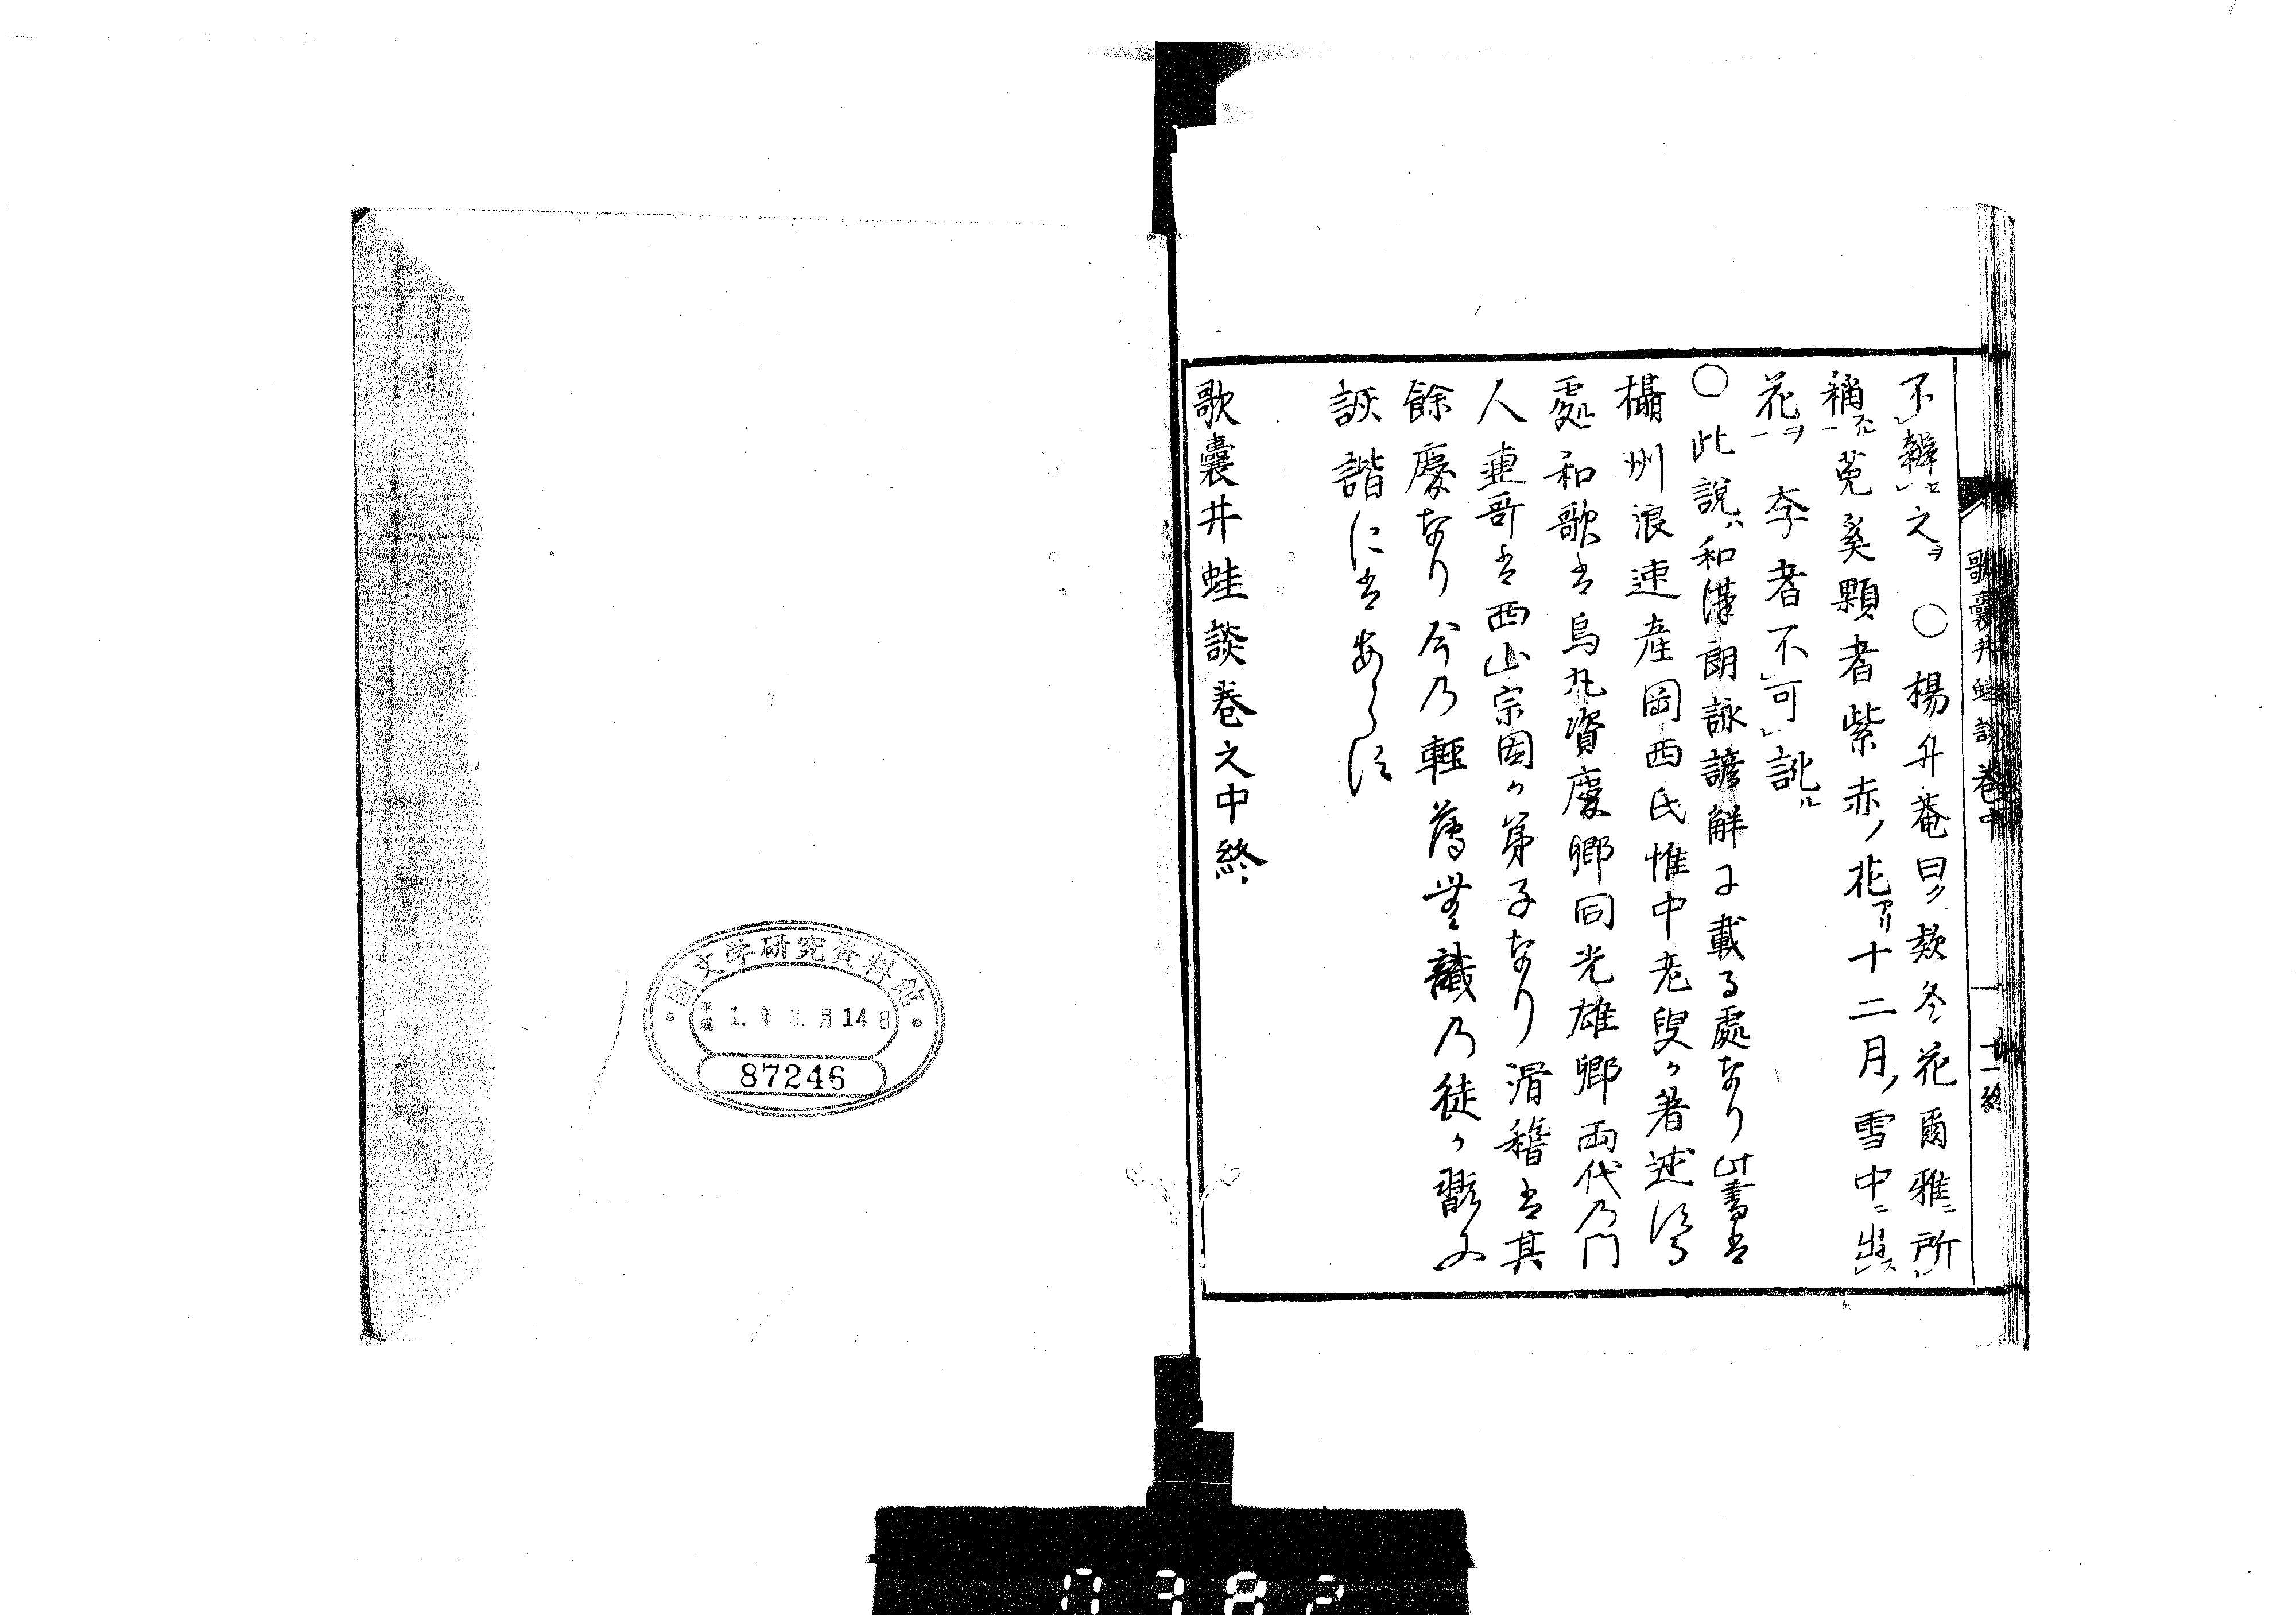 歌嚢井蛙談 巻中 廿一終
不㆑辨㆑セ之ヲ ○楊升菴曰ク款冬花爾雅ニ所㆑
稱スル㆒菟奚顆者紫赤ノ花アリ十二月ノ雪中ニ出ス㆑
花ヲ㆒李者不㆑可㆑訛ル
○此説ハ和漢朗詠諺解に載る處なり此書は
攝州浪速産岡西氏惟中老叟か著述する
處和歌は烏丸資慶卿同光雄卿両代乃門
人連哥は西山宗因か弟子なり滑稽は其
餘慶なり今乃輕薄無識乃徒か翫ふ
詼諧にはあらす
歌嚢井蛙談巻之中終
国文学研究資料館
平成 年 月14日
87246